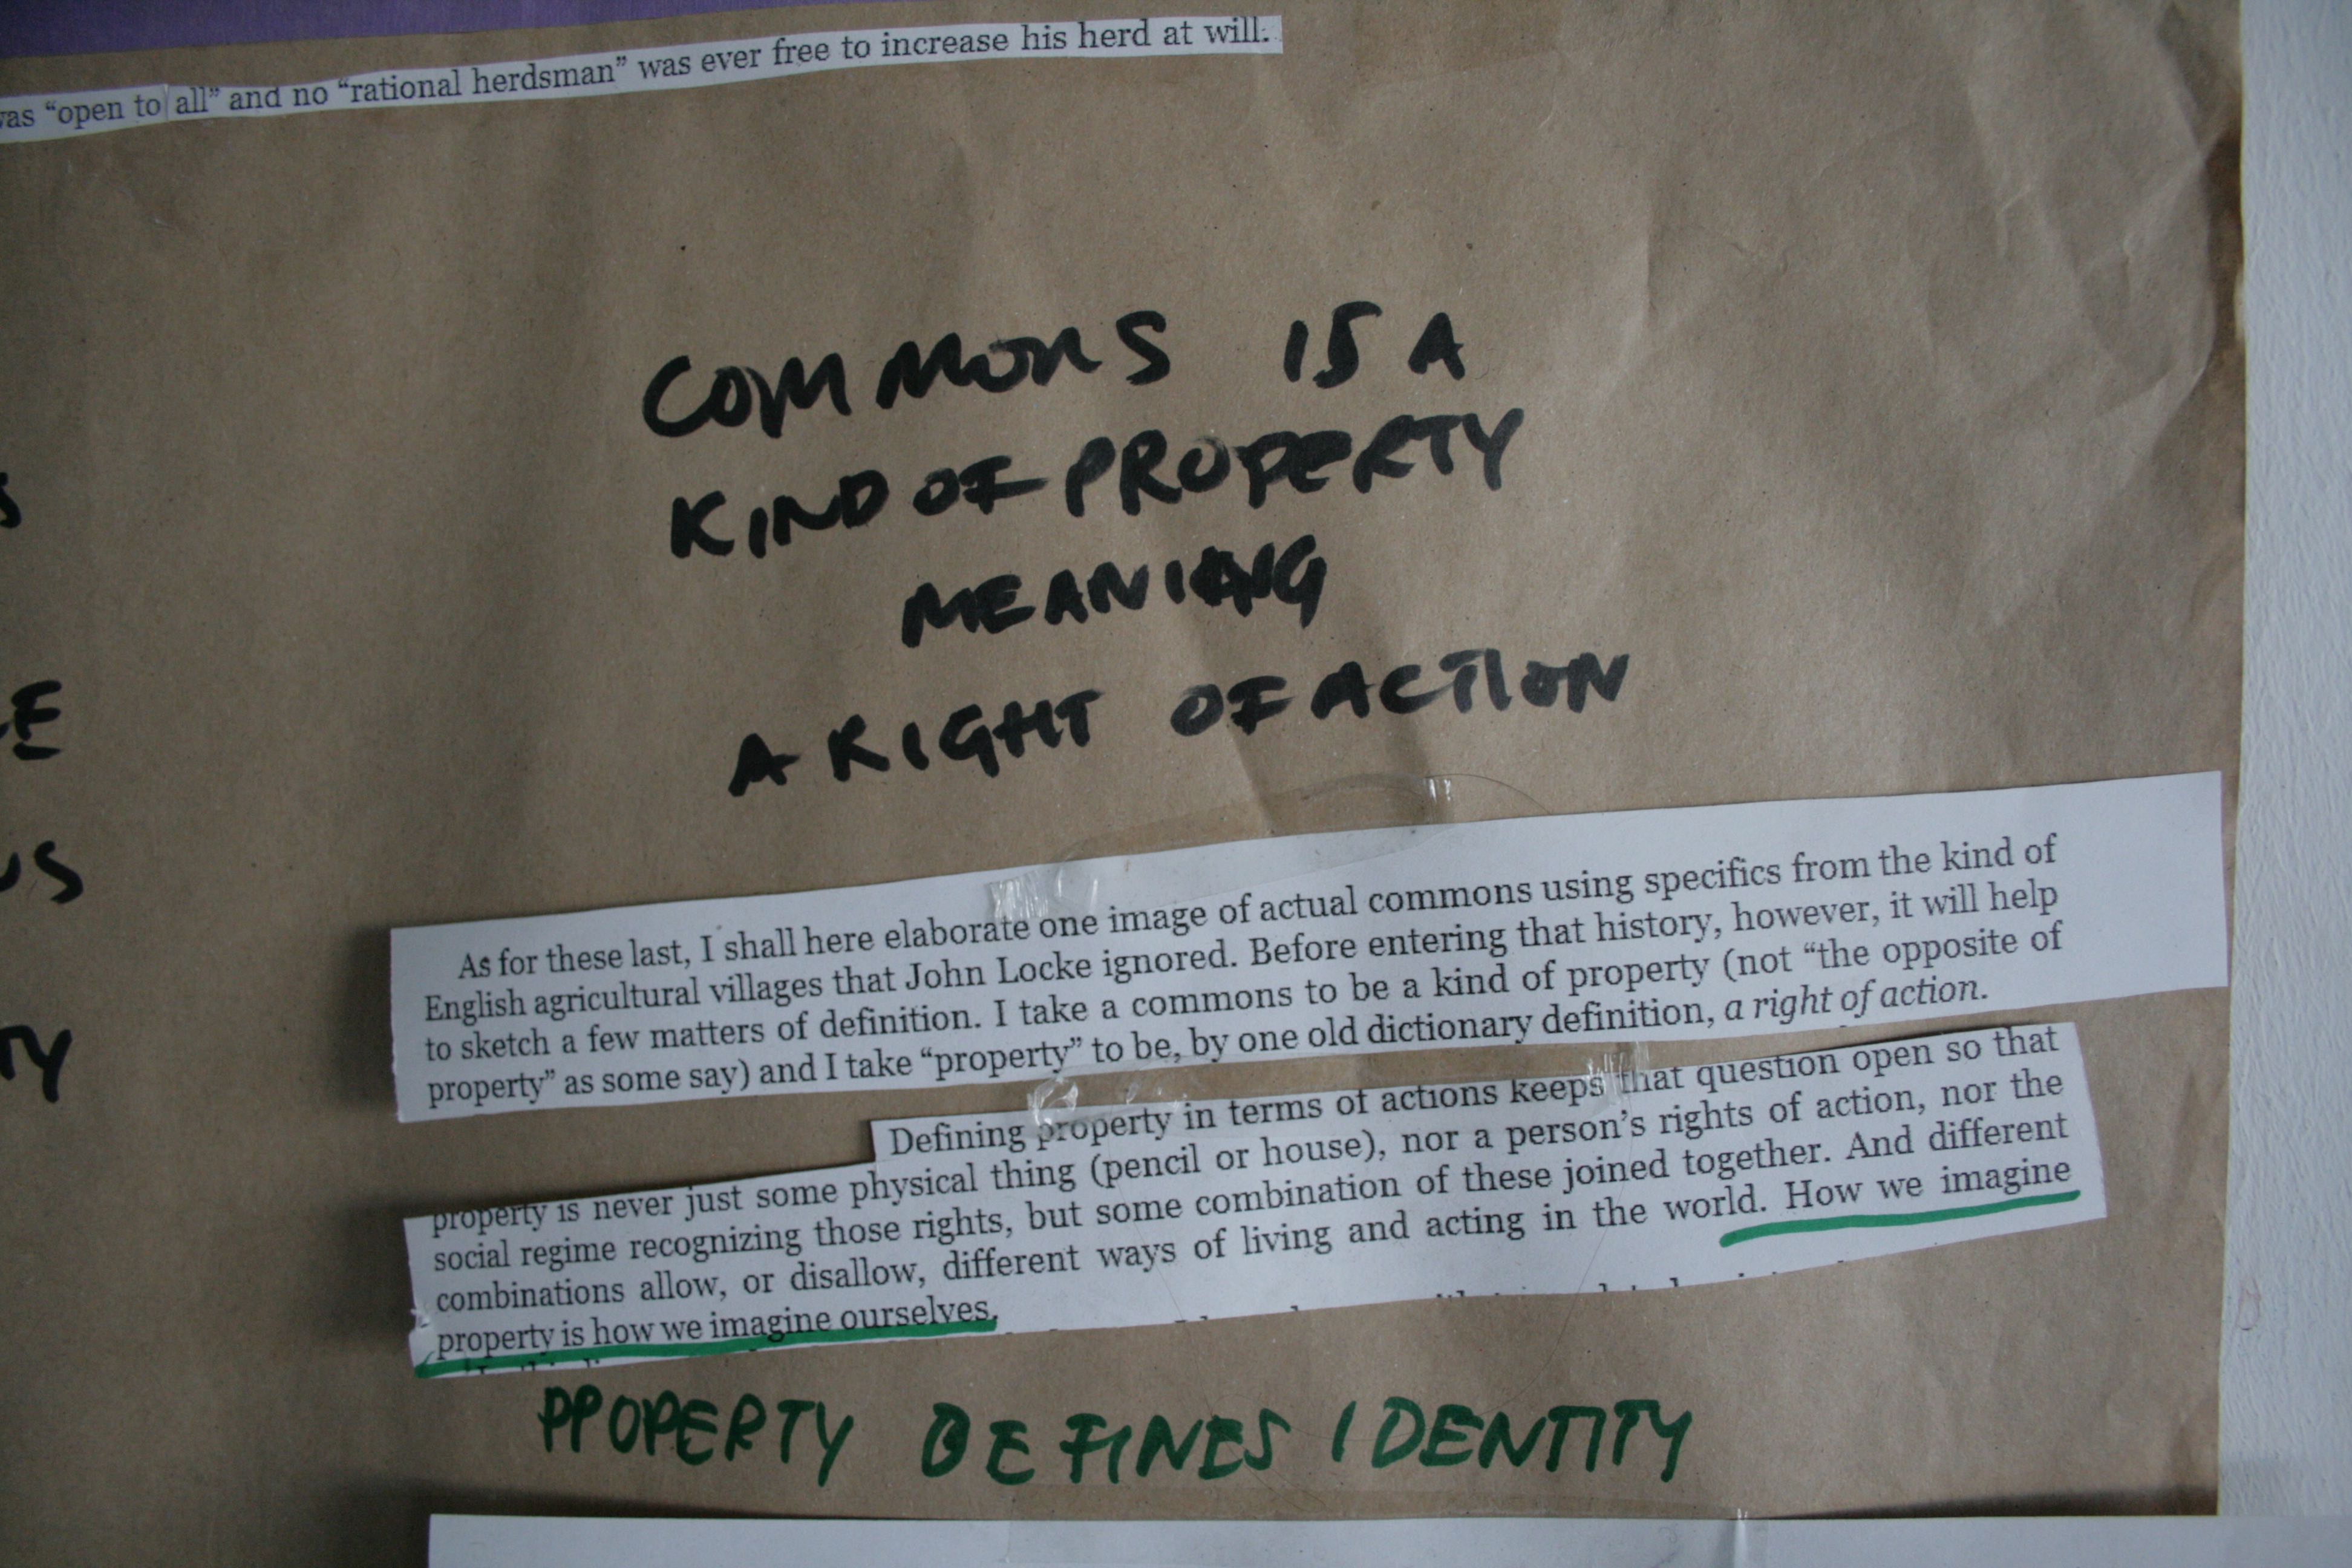 was “open to all” and no “rational herdsman” was ever free to increase his herd at will.
COMMONS IS A
KIND OF PROPERTY
MEANING
A RIGHT OF ACTION
S
E
US
TY
As for these last, I shall here elaborate one image of actual commons using specifics from the kind of
English agricultural villages that John Locke ignored. Before entering that history, however, it will help
to sketch a few matters of definition. I take a commons to be a kind of property (not “the opposite of
property” as some say) and I take “property” to be, by one old dictionary definition, a right of action.
Defining property in terms of actions keeps that question open so that
property is never just some physical thing (pencil or house), nor a person’s rights of action, nor the
social regime recognizing those rights, but some combination of these joined together. And different
combinations allow, or disallow, different ways of living and acting in the world. How we imagine
property is how we imagine ourselves.
PPOPERTY DEFINES IDENTITY